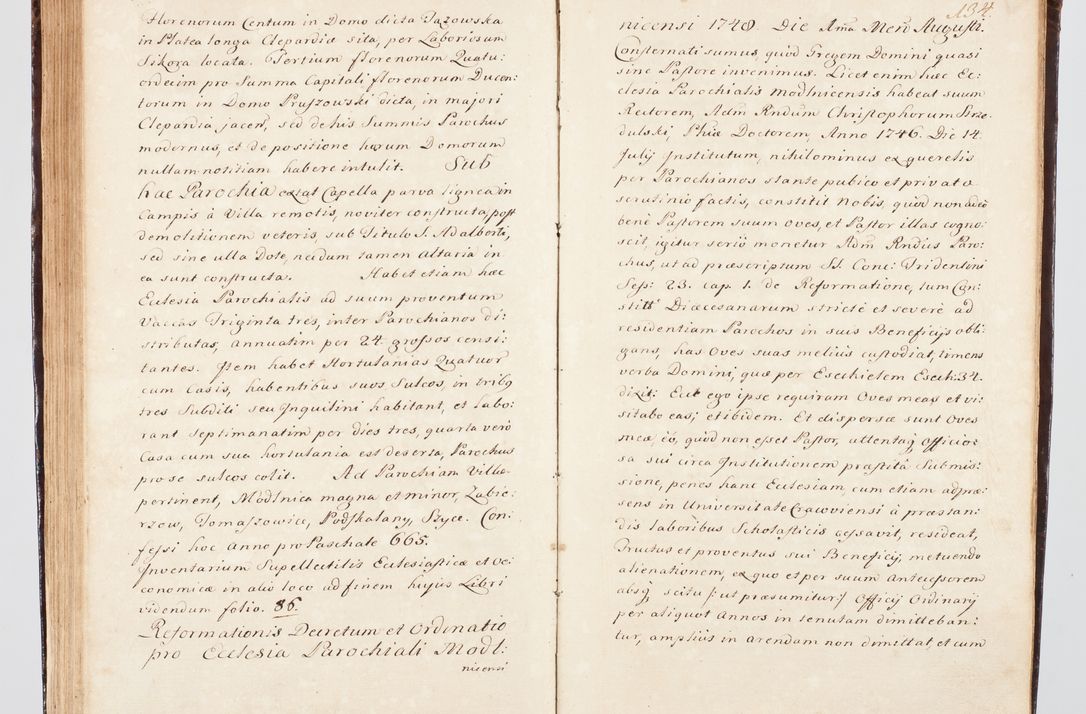 Florenorum Centum in Domo dicta Jazowska
in Platea longa Clepardiæ sita, per Laboriosum
Sikora locata. Tertium florenorum Quatu:
ordecim pro Summa Capitali florenorum Ducen:
torum in Domo Pruszowski dicta, in majori
Clepardia jacen, sed de his Summis Parochus
modernus, et de positione horum Domorum
nullam notitiam habere intulit. Sub
hac Parochia extat Capella parva lignea in
Campis à Villa remotis, noviter constructa, post
demolitionem veteris, sub Titulo S. Adalberti,
sed sine ulla Dote, necdum tamen Altaria in
ea sunt constructa. Habet etiam hæc
Ecclesia Parochialis ad suum proventum
Vaccas Triginta tres, inter Parochianos di:
stributas, annuatim per 24 grossos censi:
tantes. Item habet Hortulanias Quatuor
cum Casis, habentibus suos Sulcos, in tribq
tres Subditi seu Inquilini habitant, et labo:
rant septimanatim per dies tres, quarta verò
Casa cum sua hortulania est deserta, Parochus
pro se sulcos colit. Ad Parochiam Villæ
pertinent, Modlnica magna et minor, Zabie:
rzow, Tomaszowice, Podskalany, Szyce. Con:
fessi hoc Anno pro Paschate 665.
Inventarium Supellectilis Ecclesiasticæ et Oe:
conomicæ in alio loco ad finem hujus Libri
videndum folio. 86.
Reformationis Decretum et Ordinatio
pro Ecclesia Parochiali Modl:
nicensi
134.
nicensi 1748. Die Ama Mens Augusti.
Consternati sumus, quod Gregem Domini quasi
sine Pastore invenimus. Licet enim hæc Ec:
clesia Parochialis Modlnicensis habeat suum
Rectorem, Adm Rndum Christophorum Strze:
dulski, Phiæ Doctorem, Anno 1746. Die 14
Julij Institutum, nihilominus ex querelis
per Parochianos stante publico et privato
scrutinio factis, constitit Nobis, quòd non adeò
benè Pastorem suum Oves, et Pastor illas cogno:
scit, igitur seriò monetur Adm Rndus Paro:
chus, ut ad præscriptum SS. Conc: Tridentini
Sess: 23. cap. 1. de Reformatione, tum Con:
stitt Diæcesanarum strictè et severè ad
residentiam Parochos in suis Beneficijs obli:
gans, has Oves suas meliùs custodiat, timens
verba Domini, quæ per Esechielem Esech: 34.
dixit: Ecce ego ipse requiram Oves meas et vi:
sitabo eas; et ibidem. Et dispersæ sunt Oves
meæ, eò, quòd non esset Pastor, attentaq Officio:
sa sui circa Institutionem præstitâ Submis:
sione, penes hanc Ecclesiam, cum etiam ad præ:
sens in Universitate Cracoviensi à præstan:
dis laboribus Scholasticis cessavit, resideat,
Fructus et proventus sui Beneficij, metuendo
alienationem, ex quo et per suum Antecessorem
absq scitu /: ut præsumitur :/ Officij Ordinarij
per aliquot Annos in tenutam dimitteban:
tur, ampliùs in arendam non dimittat, et cum